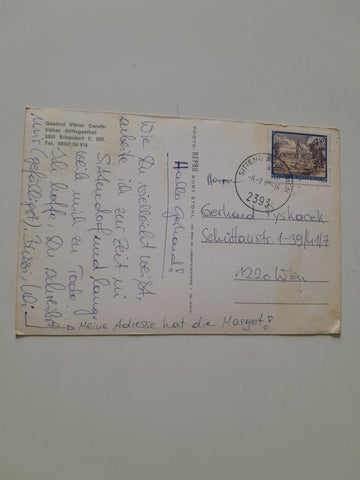 Gasthof Viktor Cander
früher Stiftsgasthof
2393 Sittendorf 7, NÖ.
Tel. 02237/84 915
Hallo Gerhard!
Wie Du vielleicht weißt,
arbeite ich zur Zeit in
Sittendorf und lang-
weile mich zu Tode.
Ich hoffe, Du schreibst
mir (gefälligst). Bussi,
Meine Adresse hat die Margot!
PHOTO REPRO KURT STOHL
SITTENDORF
2393
Herrn
Gerhard Tyskacek
Schüttaustr. 1-39/41/7
1220 Wien